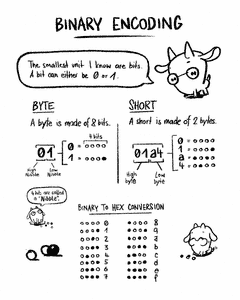 BINARY ENCODING
The smallest unit I know are bits.
1 bit can either be 0 or 1.
BYTE
A byte is made of 8 bits.
4 bits
01
0 =
1 =
High Nibble
Low Nibble
4 bit are called a "Nibble".
SHORT
A short is made of 2 bytes.
01a4
0 =
1 =
a =
4 =
High byte
Low byte
BINARY TO HEX CONVERSION
0
1
2
3
4
5
6
7
8
9
a
b
c
d
e
f